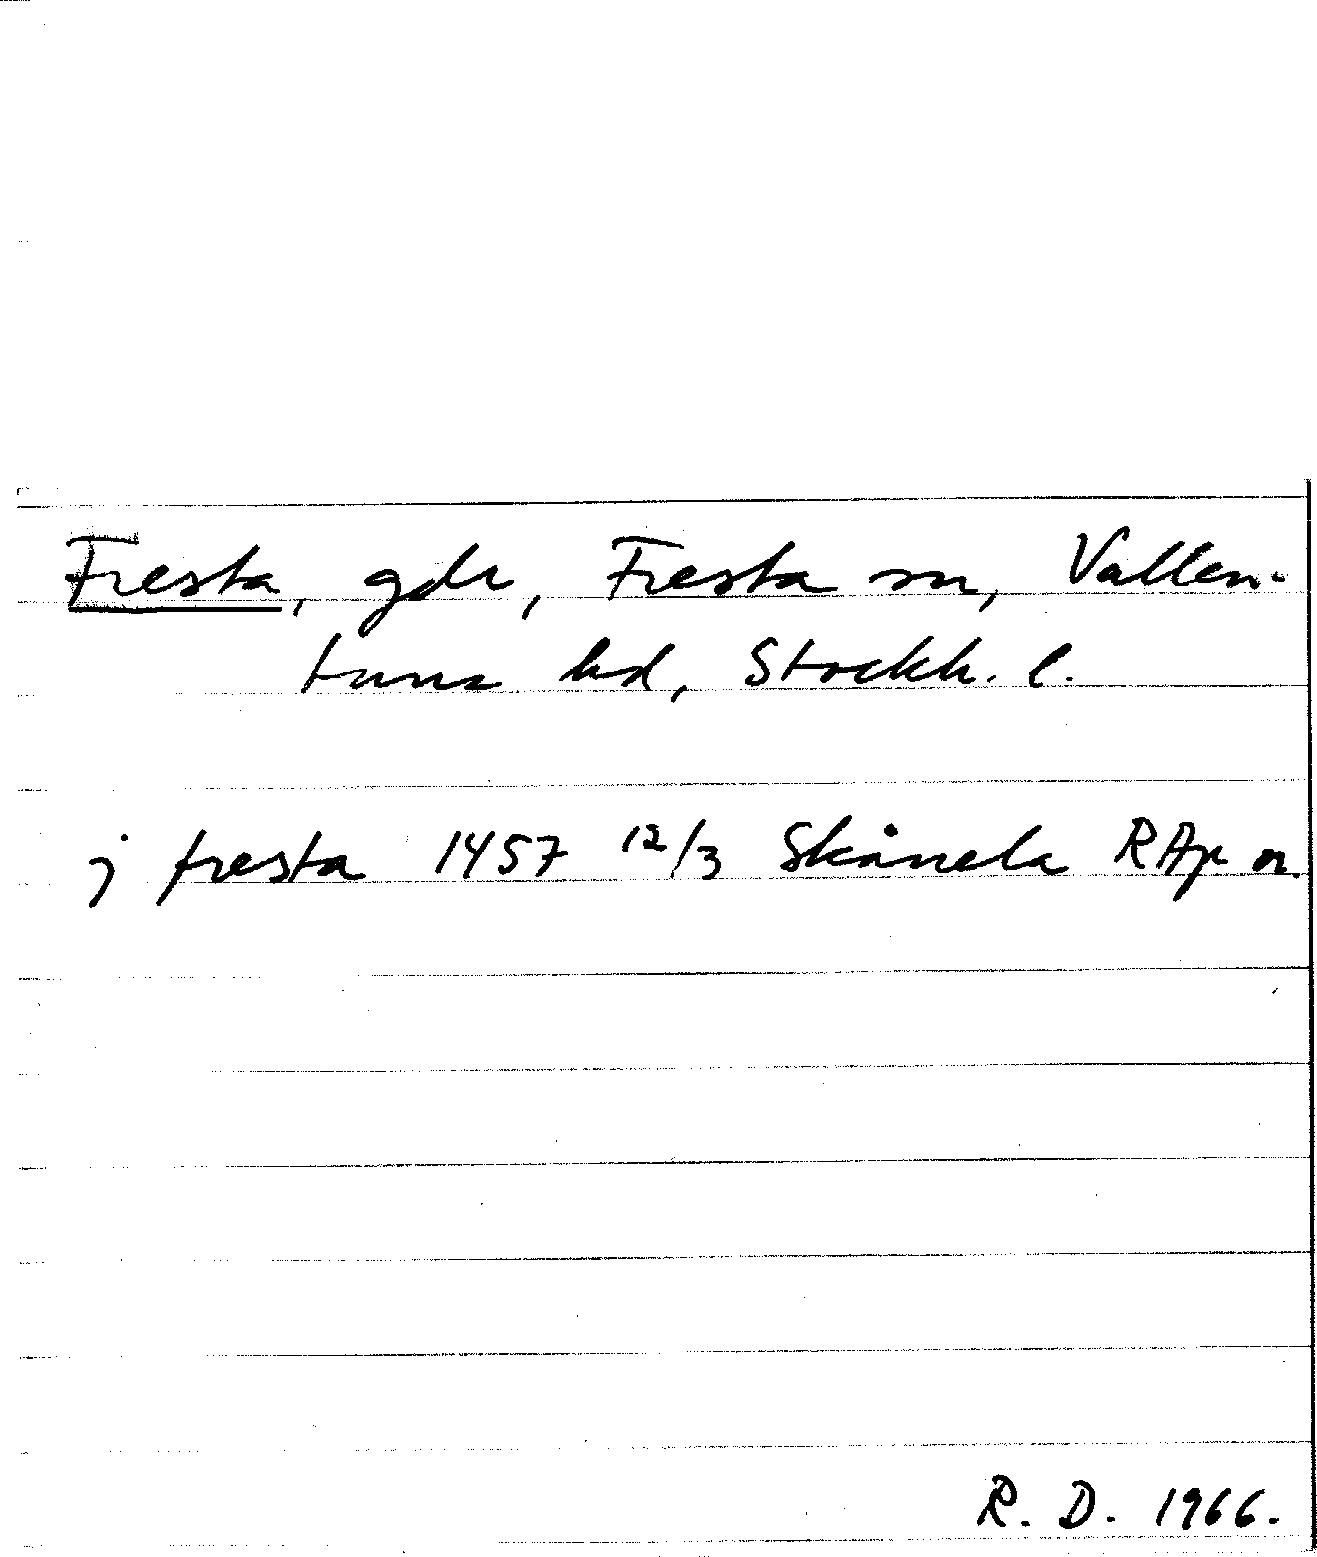 Fresta, gdr, Fresta sn, Vallen-
tuna hd, Stockh. l.
j fresta 1457 12/3 Skånela RAp or.
R. D. 1966.